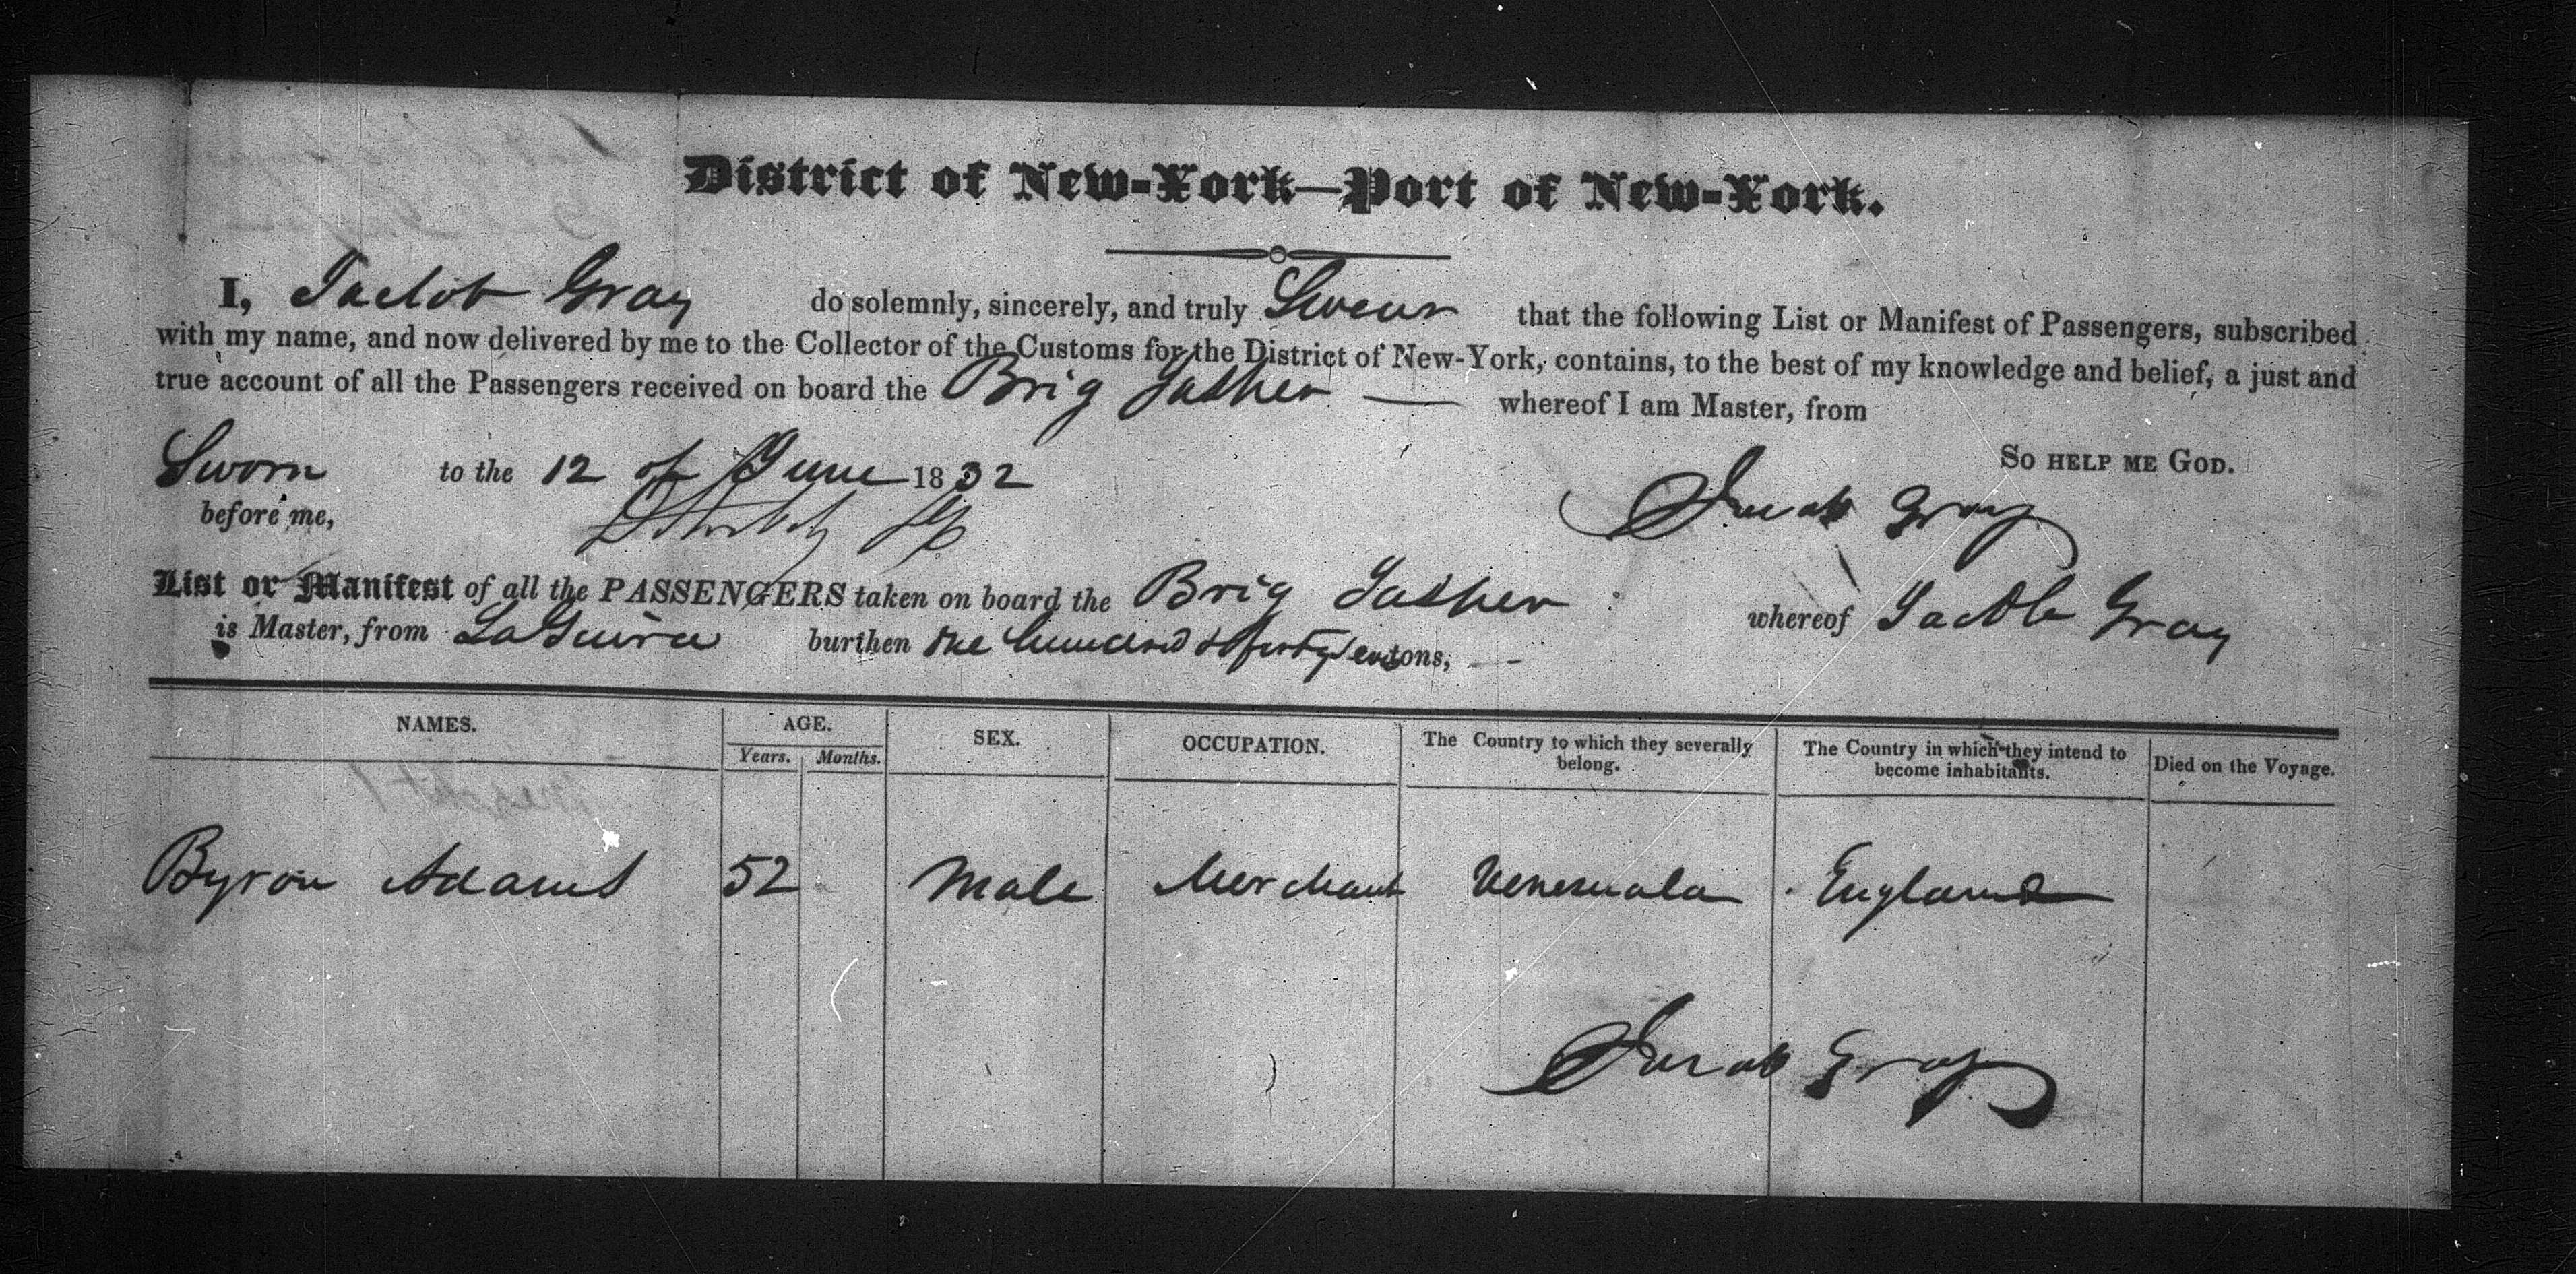 District of New-York—Port of New-York.
I, Jacob Gray do solemnly, sincerely, and truly Swear that the following List or Manifest of Passengers, subscribed
with my name, and now delivered by me to the Collector of the Customs for the District of New-York, contains, to the best of my knowledge and belief, a just and
true account of all the Passengers received on board the Brig Jasper — whereof I am Master, from
So help me God.
Sworn to the 12 of June 1832
Jacob Gray
before me,
List or Manifest of all the PASSENGERS taken on board the Brig Jasper whereof Jacob Gray
is Master, from LaGuira burthen one hundred & tons, —
NAMES. AGE. SEX. OCCUPATION. The Country to which they severally belong. The Country in which they intend to become inhabitants. Died on the Voyage.
Years. Months.
Byron Adams 52 Male Merchant Venesuala England
Jacob Gray